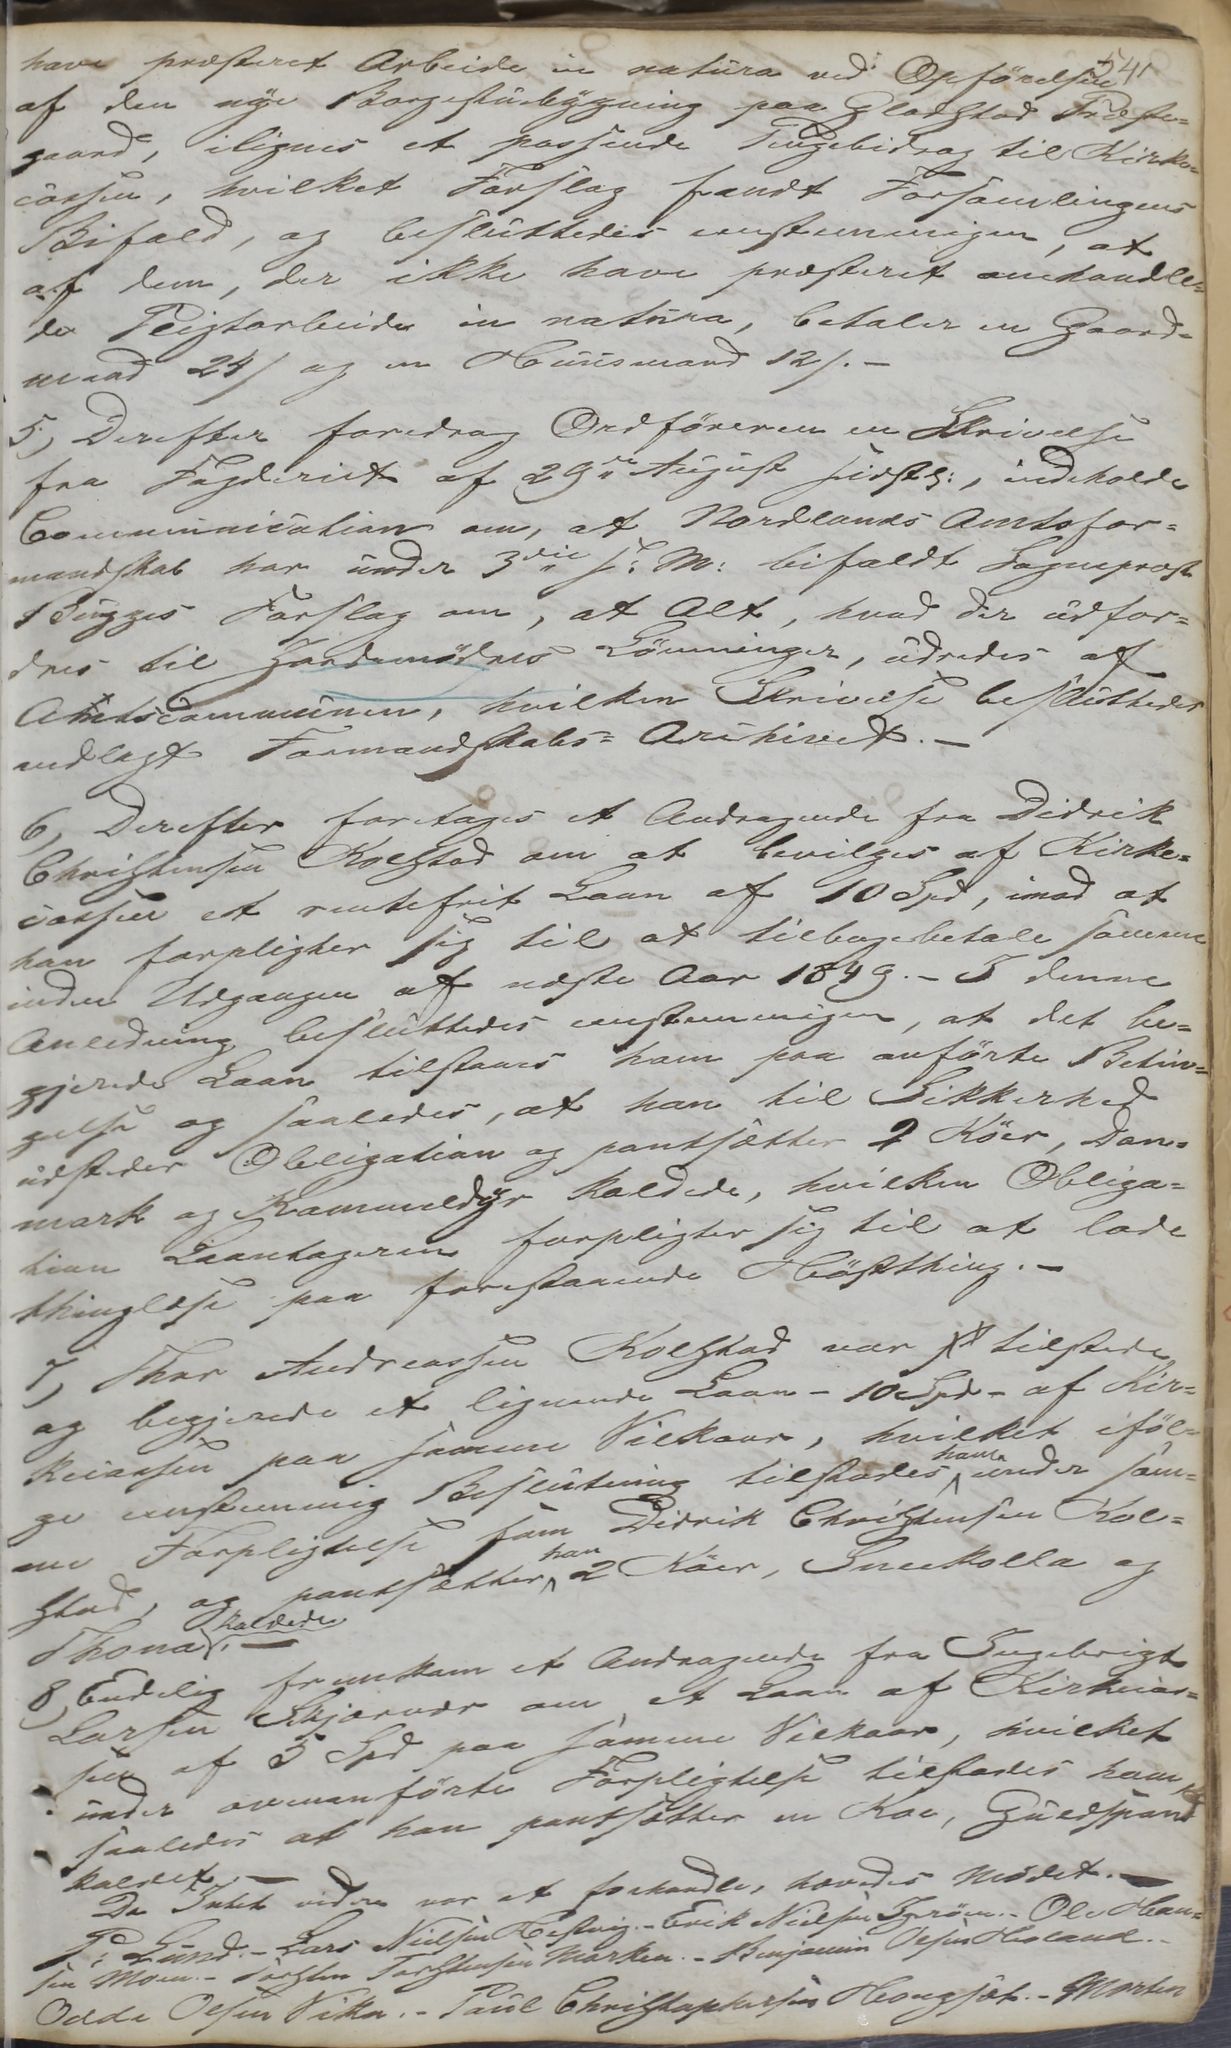 541
have præsteret Arbeide in natura ved Opförelsen
af den nye Borgestuebygning paa Gladstad Præste=
gaard, ilignes et passende Pengebidrag til Kirke=
cassen, hvilket Forslag fandt Forsamlingens
Bifald, og besluttedes eenstemmigen, at
af dem, der ikke have præsteret omhandle=
de Pligtarbeide in natura, betaler en Gaard=
mand 24 s og en Huusmand 12 s. -
5, Derefter foredrog Ordföreren en Skrivelse
fra Fogderiet af 29de August sidstl:, indeholde
Communication om, at Nordlands Amtsfor=
mandskab har under 3die s: M: bifaldt Sognepræst
Bugges Forslag om, at Alt, hvad der udfor=
dres til Jordemödres Lönninger, udredes af
Amtscommunen, hvilken Skrivelse besluttedes
nedlagt Formandskabs=Archivet. -
6, Derefter foretoges et Andragende fra Didrik
Christensen Kolstad om at bevilges af Kirke=
cassen et rentefrit Laan af 10 Spd, imod at
han forpligter sig til at tilbagebetale samme
inden Udgangen af næste Aar 1849. - I denne
Anledning besluttedes eenstemmigen, at det be=
gjerede Laan tilstaaes ham paa anförte Betin=
gelse og saaledes, at han til Sikkerhed
udsteder Obligation og pantsætter 2 Köer, Dan=
mark og Kammeldyr kaldede, hvilken Obliga=
tion Laantageren forpligter sig til at lade
thinglæse paa forestaaende Höstthing. -
7, Thor Andreassen Kolstad var tilstede
og begjerede et lignende Laan - 10 Spd - af Kir=
kecassen paa samme Vilkaar, hvilket iföl=
ge eenstemmig Beslutning tilstodes ham under sam=
me Forpligtelse som Didrik Christensen Kol=
stad, og pantsætter han 2 Köer, Sneekolla og
Thona kaldede. -
8, Endelig fremkom et Andragende fra Ingebrigt
Larsen Skjærvær om et Laan af Kirkecas=
sen af 5 Spd paa samme Vilkaar, hvilket
under ovenanförte Forpligtelse tilstodes ham
saaledes at han pantsætter en Koe, Guldspand
kaldet. -
Da Intet videre var at forhandle, hævedes Mödet. -
P: Lund. - Lars Nielsen Hestvig. - Erik Nielsen - Ole Han=
sen Moen. - Torsten Torstensen Marken. - Benjamin Olsen
Odde Olsen Vika. - Paul Christophersen Hongsæt. - Morten